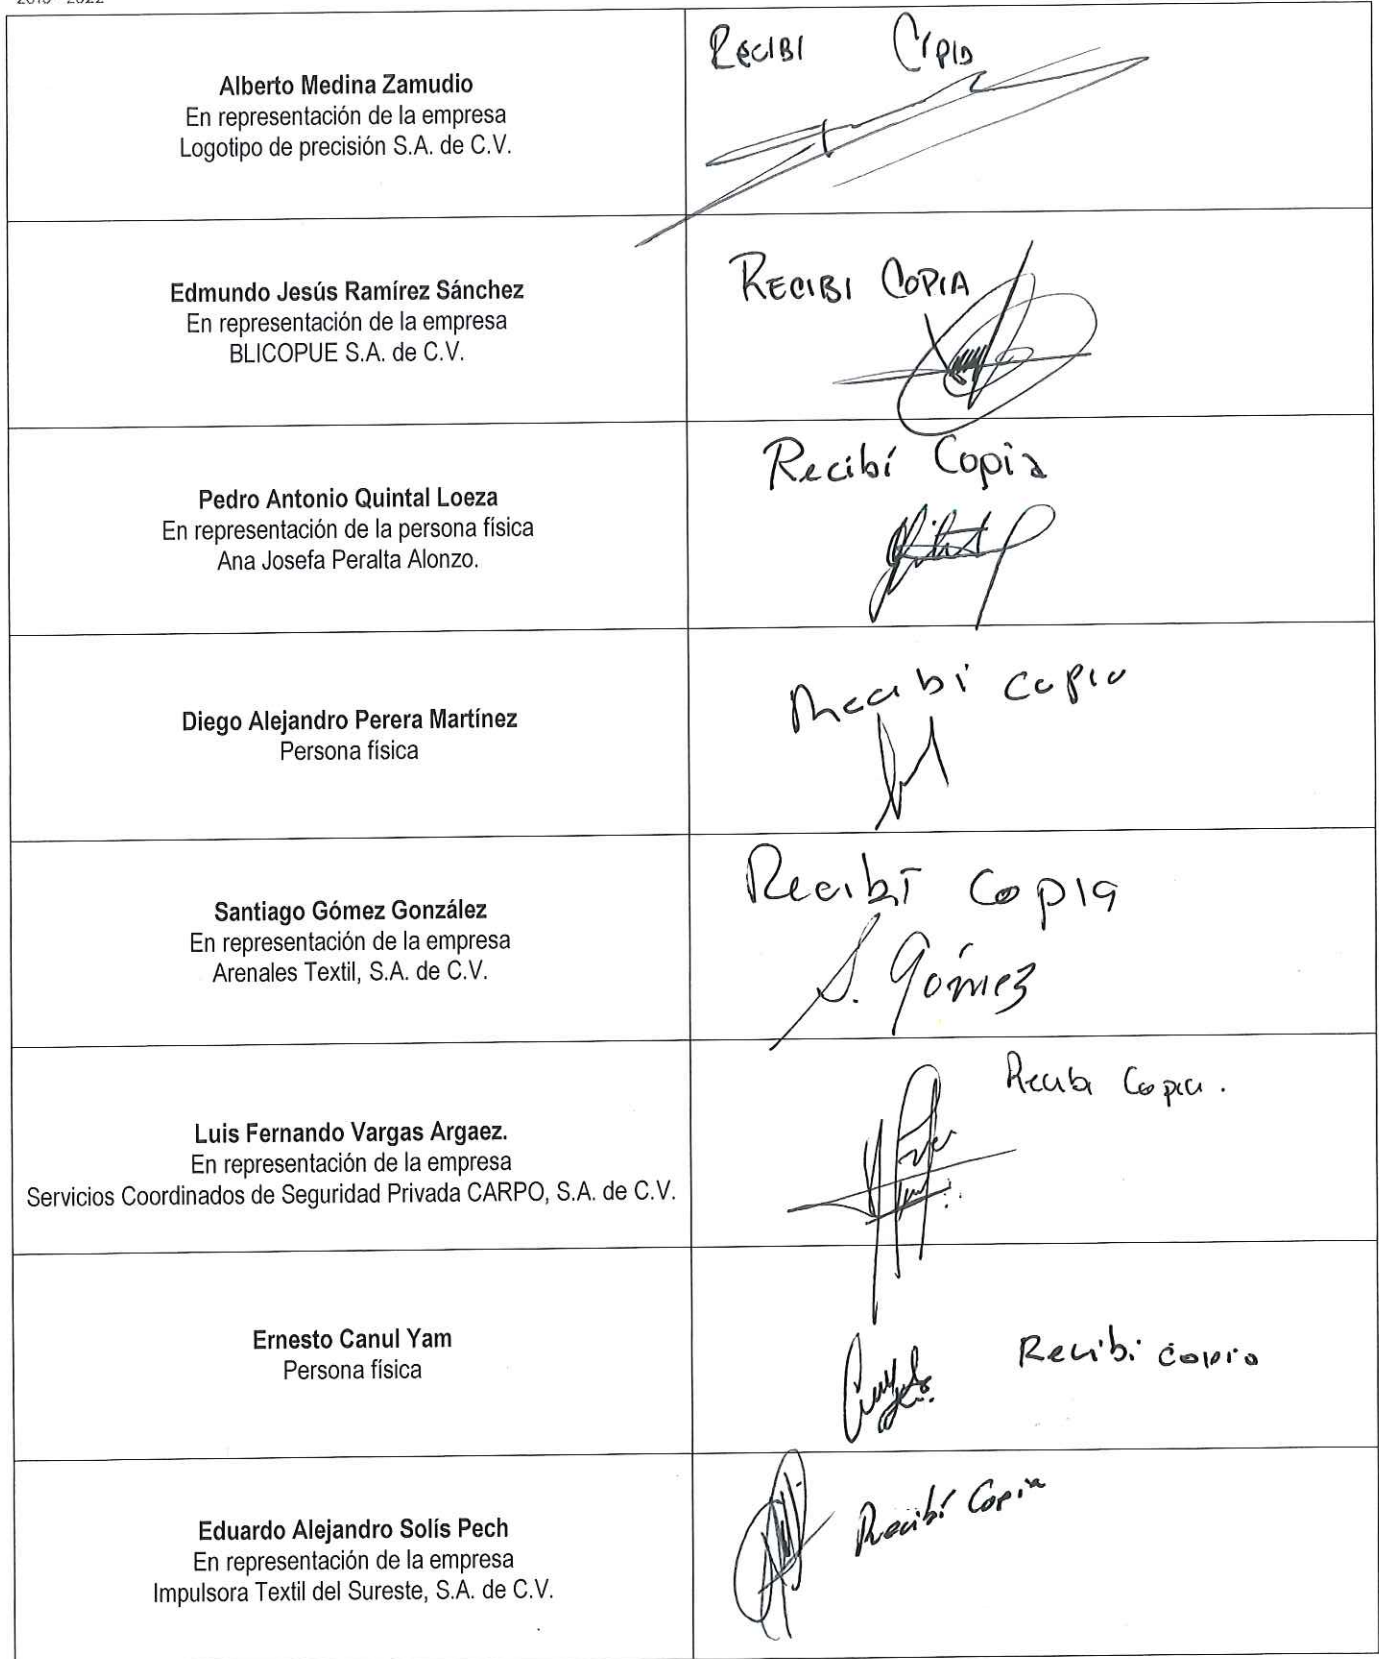 Alberto Medina Zamudio
En representación de la empresa
Logotipo de precisión S.A. de C.V.
RECIBI COPIA
Edmundo Jesús Ramírez Sánchez
En representación de la empresa
BLICOPUE S.A. de C.V.
RECIBI COPIA
Pedro Antonio Quintal Loeza
En representación de la persona física
Ana Josefa Peralta Alonzo.
Recibí Copia
Diego Alejandro Perera Martínez
Persona física
Recibi copia
Santiago Gómez González
En representación de la empresa
Arenales Textil, S.A. de C.V.
Recibí Copia
S. Gómez
Luis Fernando Vargas Argaez.
En representación de la empresa
Servicios Coordinados de Seguridad Privada CARPO, S.A. de C.V.
Recibi Copia.
Ernesto Canul Yam
Persona física
Recibi copia
Eduardo Alejandro Solís Pech
En representación de la empresa
Impulsora Textil del Sureste, S.A. de C.V.
Recibí Copia